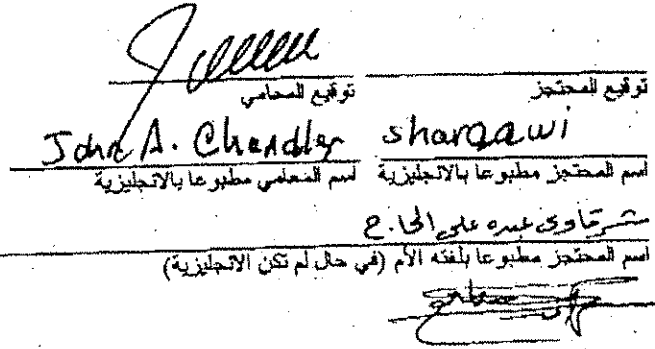 توقيع المحتجز توقيع المحامي
sharqawi John A. Chandler
اسم المحتجز مطبوعا بالانجليزية اسم المحامي مطبوعا بالانجليزية
شرقاوي عبده علي الحاج
اسم المحتجز مطبوعا بلغته الأم (في حال لم تكن الانجليزية)